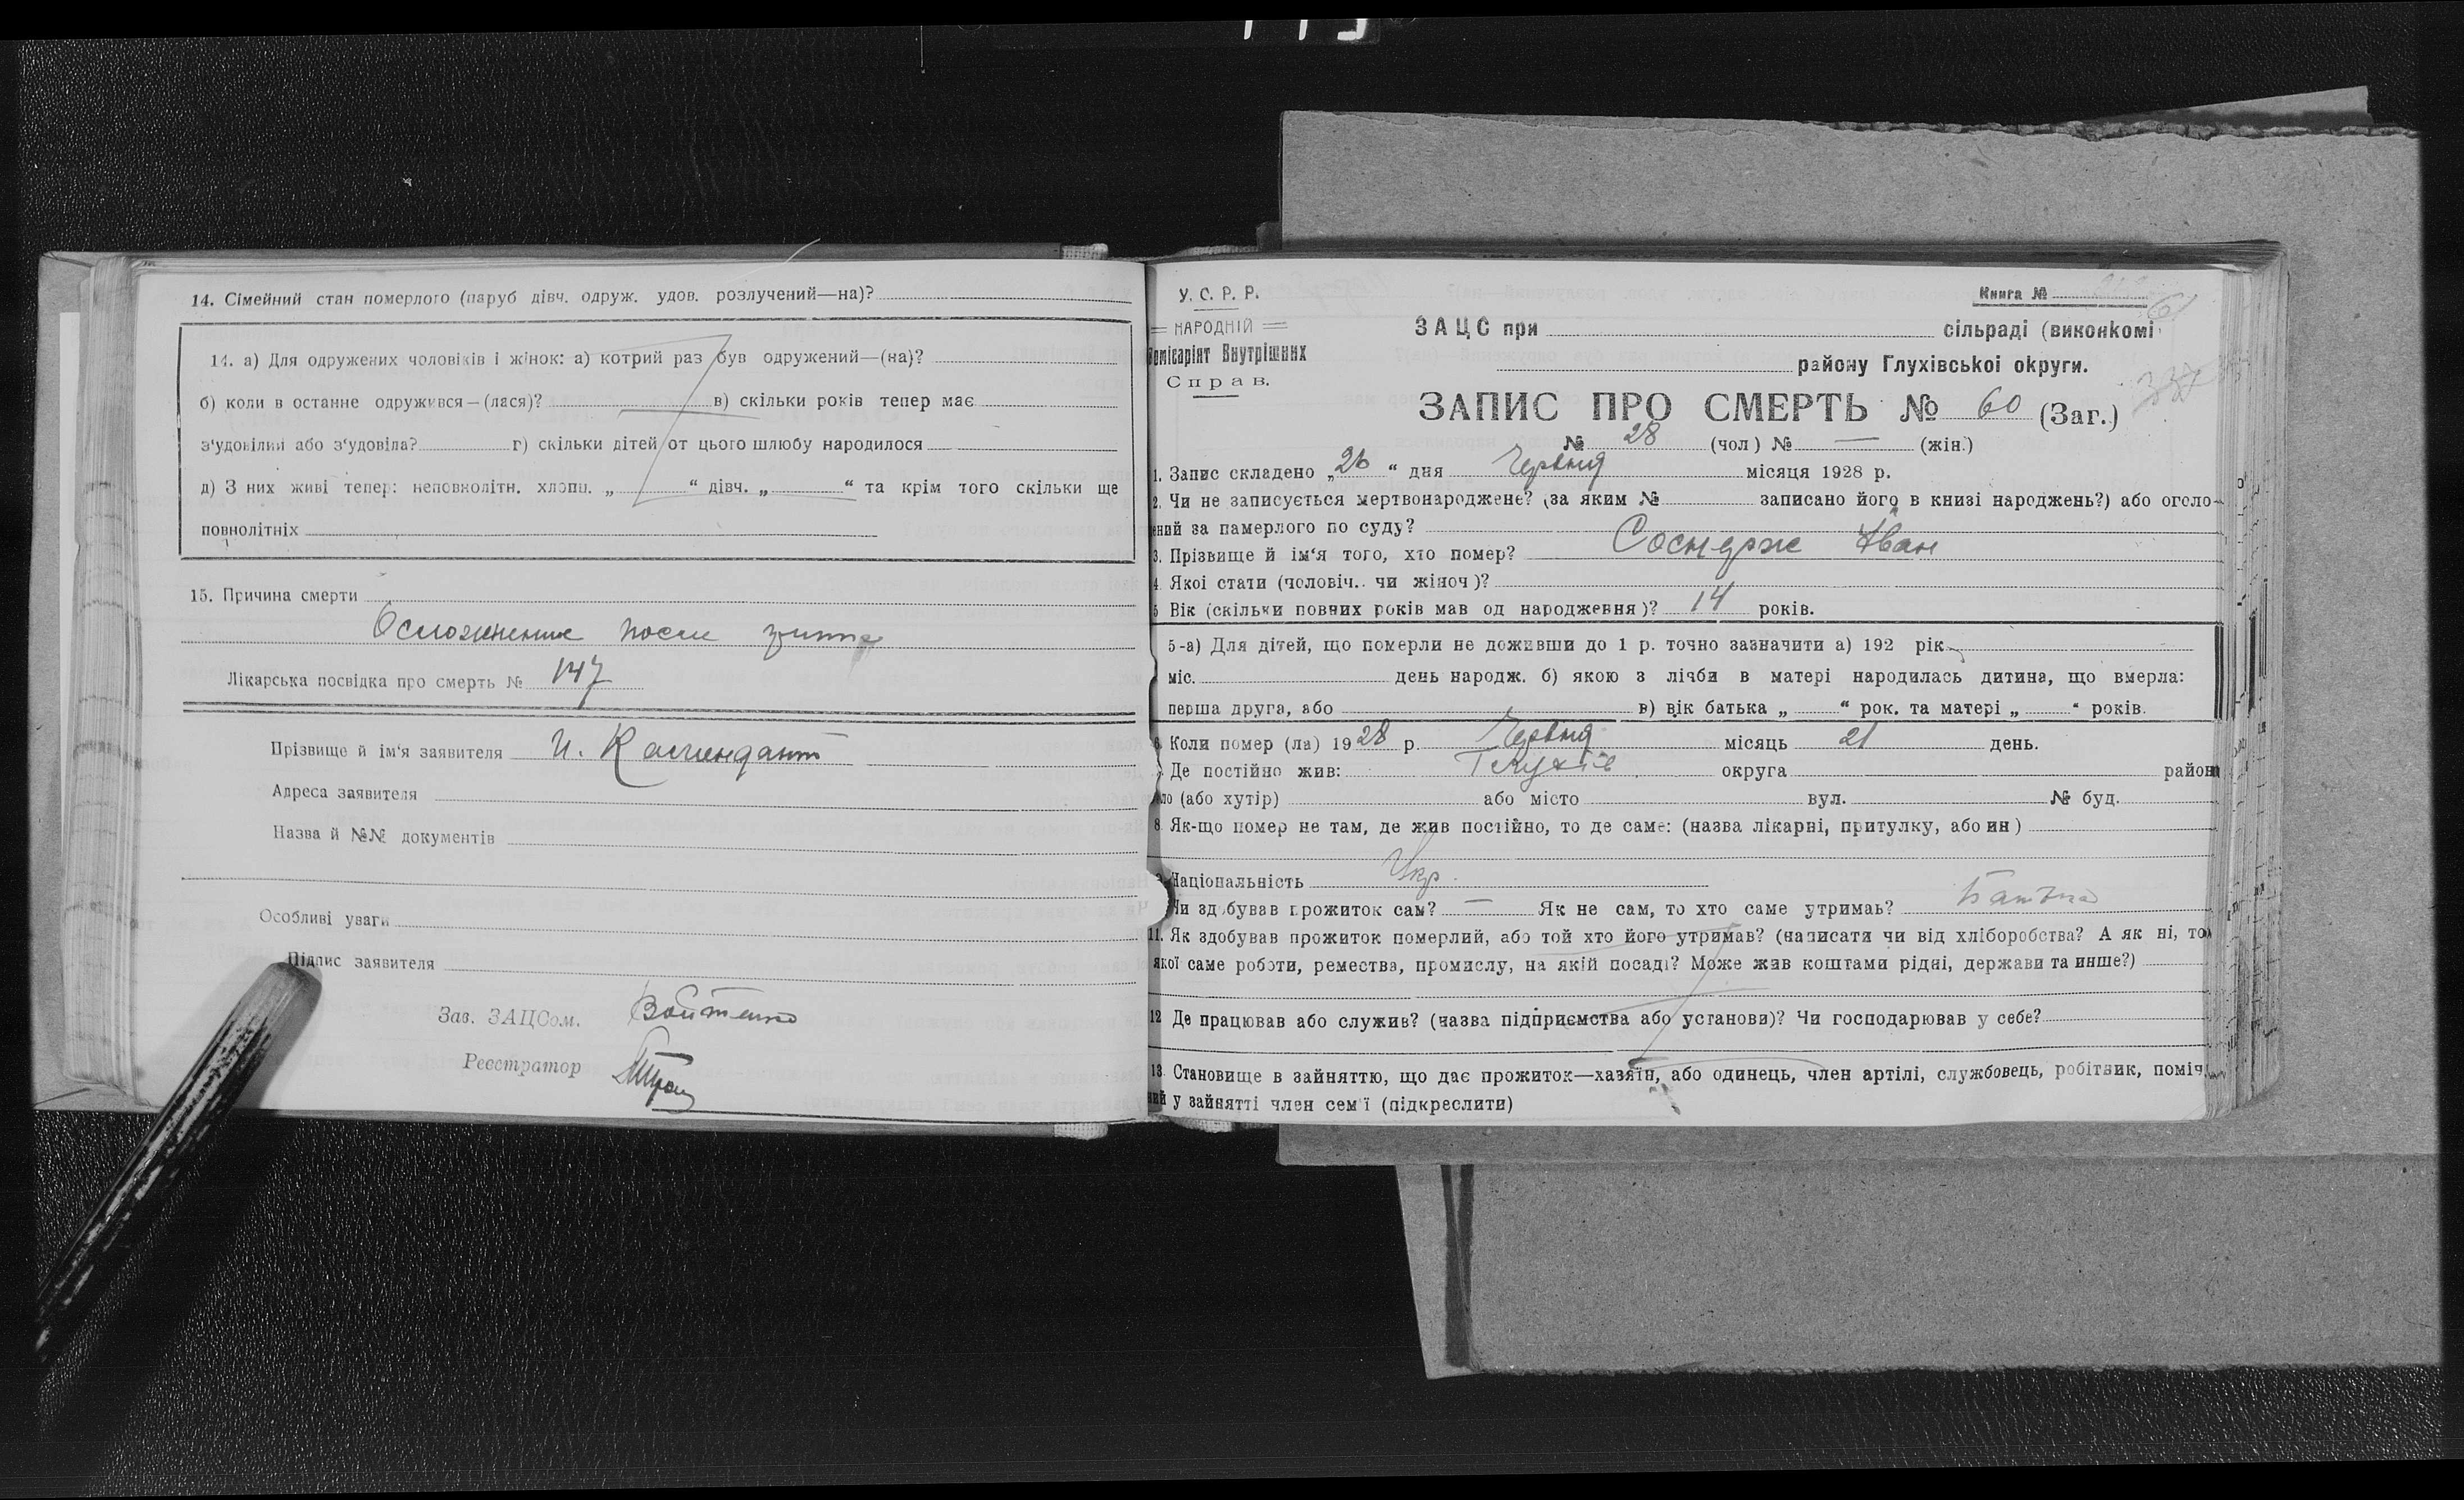 14. Сімейний стан померлого (паруб дівч. одруж. удов. розлучений—на)?
14. а) Для одружених чоловіків і жінок: а) котрий раз був одружений—(на)?
б) коли в останне одружився—(лася)? в) скільки років тепер має
з'удовілий або з'удовіла? г) скільки дітей от цього шлюбу народилося
д) З них живі тепер: неповнолітн. хлопц. „ “ дівч. „ “ та крім того скільки ще
повнолітніх
15. Причина смерти
Осложнение после
Лікарська посвідка про смерть № 147
Прізвище й ім'я заявителя И. Комендант
Адреса заявителя
Назва й №№ документів
Особливі уваги
Підпис заявителя
Зав. ЗАЦСом. Войтенко
Реєстратор
У. С. Р. Р.
НАРОДНІЙ
Комісаріят Внутрішних
Справ.
Книга №
61
ЗАЦС при сільраді (виконкомі
району Глухівськоі округи.
337
ЗАПИС ПРО СМЕРТЬ № 60 (Заг.)
№ 28 (чол) № — (жін.)
1. Запис складено „26“ дня Червня місяця 1928 р.
2. Чи не записується мертвонароджене? (за яким № записано його в книзі народжень?) або оголо-
ений за памерлого по суду?
3. Прізвище й ім'я того, хто помер? Иван
4. Якоі стати (чоловіч.. чи жіноч)?
5 Вік (скільки повних років мав од народження)? 14 років.
5-а) Для дітей, що померли не доживши до 1 р. точно зазначити а) 192 рік
міс. день народж. б) якою з лічби в матері народилась дитина, що вмерла:
перша друга, або в) вік батька „ “ рок. та матері „ “ років.
6. Коли помер (ла) 1928 р. Червня місяць 21 день.
Де постійно жив: Глухів округа район
ло (або хутір) або місто вул. № буд.
8. Як-що помер не там, де жив постійно, то де саме: (назва лікарні, притулку, або ин)
Національність Укр.
Чи здобував прожиток сам? — Як не сам, то хто саме утримаь? Батько
11. Як здобував прожиток померлий, або той хто його утримав? (написати чи від хліборобства? А як ні, то
якої саме роботи, ремества, промислу, на якій посаді? Може жив коштами рідні, держави та инше?)
12 Де працював або служив? (назва підприємства або установи)? Чи господарював у себе?
13. Становище в зайняттю, що дає прожиток—хазяїн, або одинець, член артілі, службовець, робітник, поміч.
ий у зайнятті член сем'ї (підкреслити)